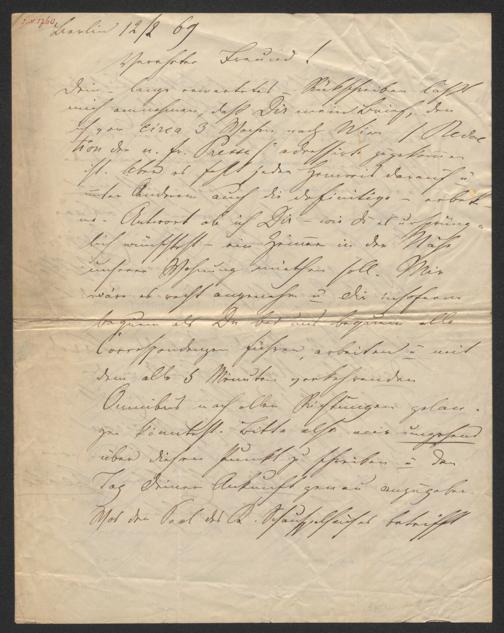 Berlin 12/2 69
Verehrter Freund!
Dein – lange erwartetes – Rückschreiben läßt
mich annehmen, daß Dir mein Brief, den
ich vor circa 3 Wochen nach Wien (Redac
tion der n. fr. Presse) adressirte zugekommen
ist. Aber es fehlt jeder Hinweis darauf u
unter Anderem auch die definitive – erbete
ne – Antwort ob ich Dir – wie Du es ursprüng-
lich wünschtest – ein Zimmer in der Nähe
unserer Wohnung miethen soll. Mir
wäre es recht angenehm u Dir insofern
bequem als Du bei uns bequem alle
Correspondenzen führen, arbeiten u mit
dem alle 5 Minuten verkehrenden
Omnibus nach allen Richtungen gelan-
gen könntest. Bitte also mir umgehend
über diesen Punkt zu schreiben u den
Tag Deiner Ankunft genau anzugeben.
Was den Saal des K. Schauspielhauses betrifft